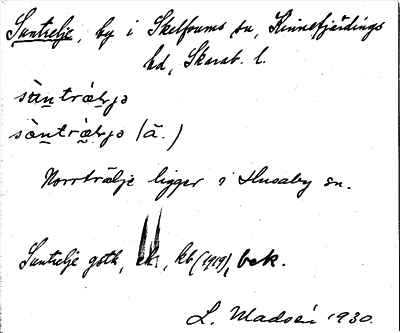 Suntrelje, by i Skelfvums sn, Kinnefjärdings
hd, Skarab. l.
(ä.)
Norrträlje ligger i Husaby sn.
Suntrelje gtk, kb (1919), bek.
L. Madsén 1930.